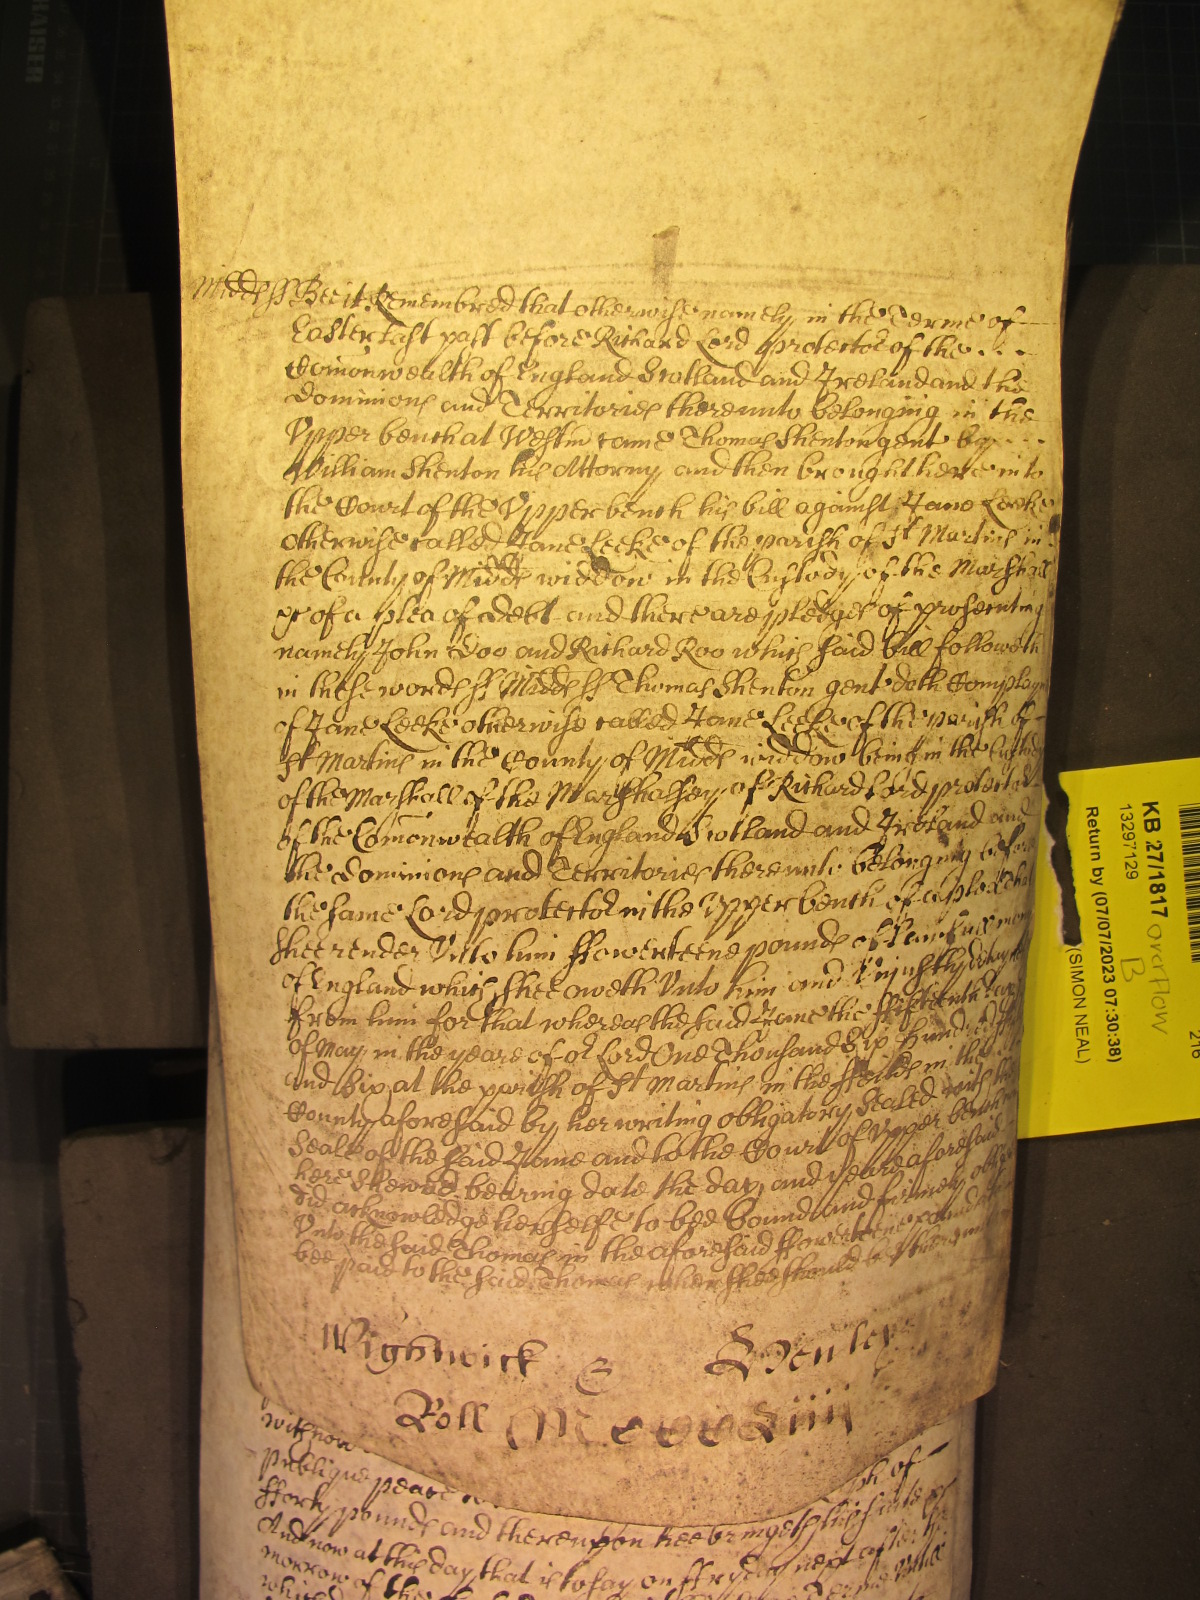 Midds ss Bee it Remembred that otherwise namely in the Terme of
Easter last past before Richard Lord protector of the . . .
Comonwealth of England Scotland and Ireland and the
Dominions and Territories thereunto belonging in the
Upper bench at Westm came Thomas Shenton gent by . . .
William Shenton his Attorny and then brought here into
the Court of the Upper bench his bill against Jane Leeke
otherwise called Jane Leeke of the parish of St Martins in
the County of Midds widdow in the Custody of the Marshall
&c of a plea of debt and there are pledges of prosecuting
namely John Doo and Richard Roo which said bill followeth
in these words ss Midds ss Thomas Shenton gent doth Complayne
of Jane Leeke otherwise called Jane Leeke of the parish of
St Martins in the County of Midds widdow being in the Custody
of the Marshall of the Marshalsey of Richard Lord protector
of the Comonwealth of England Scotland and Ireland and
the dominions and Territories thereunto belonging before
the same Lord protector in the Upper bench of a plea that
shee render Unto him ffowerteene pounds of lawfull mony
of England which shee oweth Unto him and Unjustly detayneth
from him for that whereas the said Jane the ffifteenth day
of May in the yeare of or Lord One Thousand Six hundred fifty
and Six at the parish of St Martins in the ffeilds in the
County aforesaid by her writing obligatory Sealed with the
Seale of the said Jane and to the Court of Upper bench
here Shewed bearing date the day and yeare aforesaid
did acknowledge herselfe to bee bound and firmely
Unto the said Thomas in the aforesaid ffowerteene pounds to
bee paid to the said Thomas when shee should be thereunto
Wightwick & Henley
Roll Mccccxiiii
with now
publique peace of
fforty pounds and thereupon hee bringeth this suite &c
And now at this day that is to say on ffryday next after the
morrow of the
which
KB 27/1817 overflow
B
13297129
Return by (07/07/2023 07:30:38)
(SIMON NEAL)
216